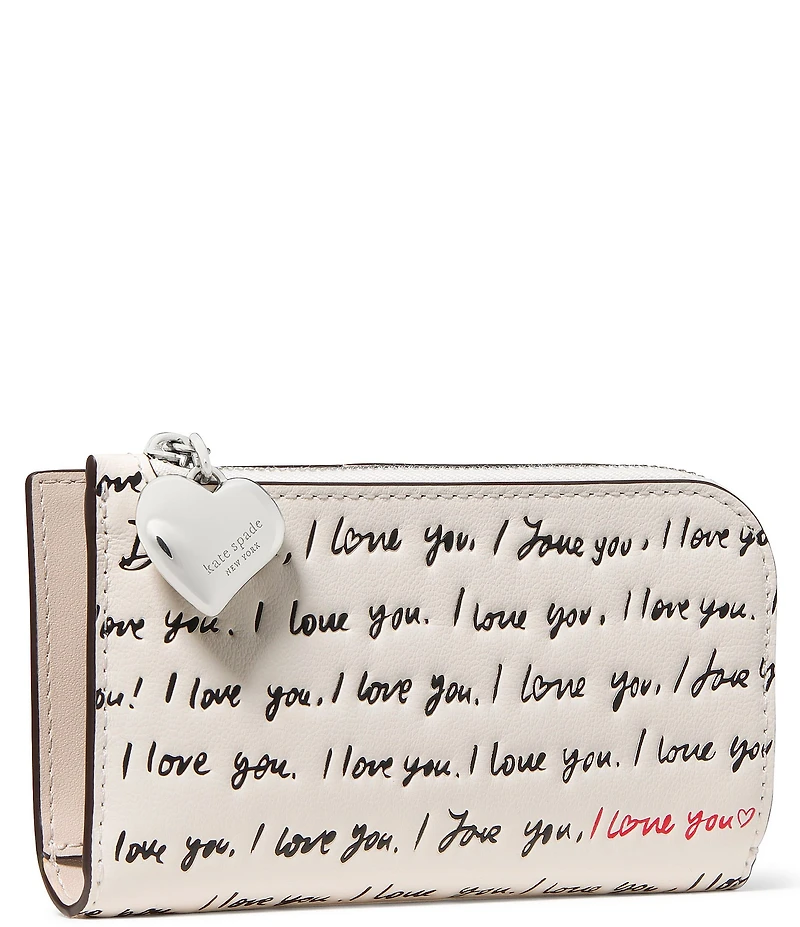 ove
kate spade
NEW YORK
I love you. I love you. I love yo
ove you. I love you. I love you. I love you. I
ou! I love you. I love you. I love you. I love y
I love you. I love you. I love you. I love you
love you. I love you. I love you. I love you♡
I love you. I love you. I love you. I love you. I love